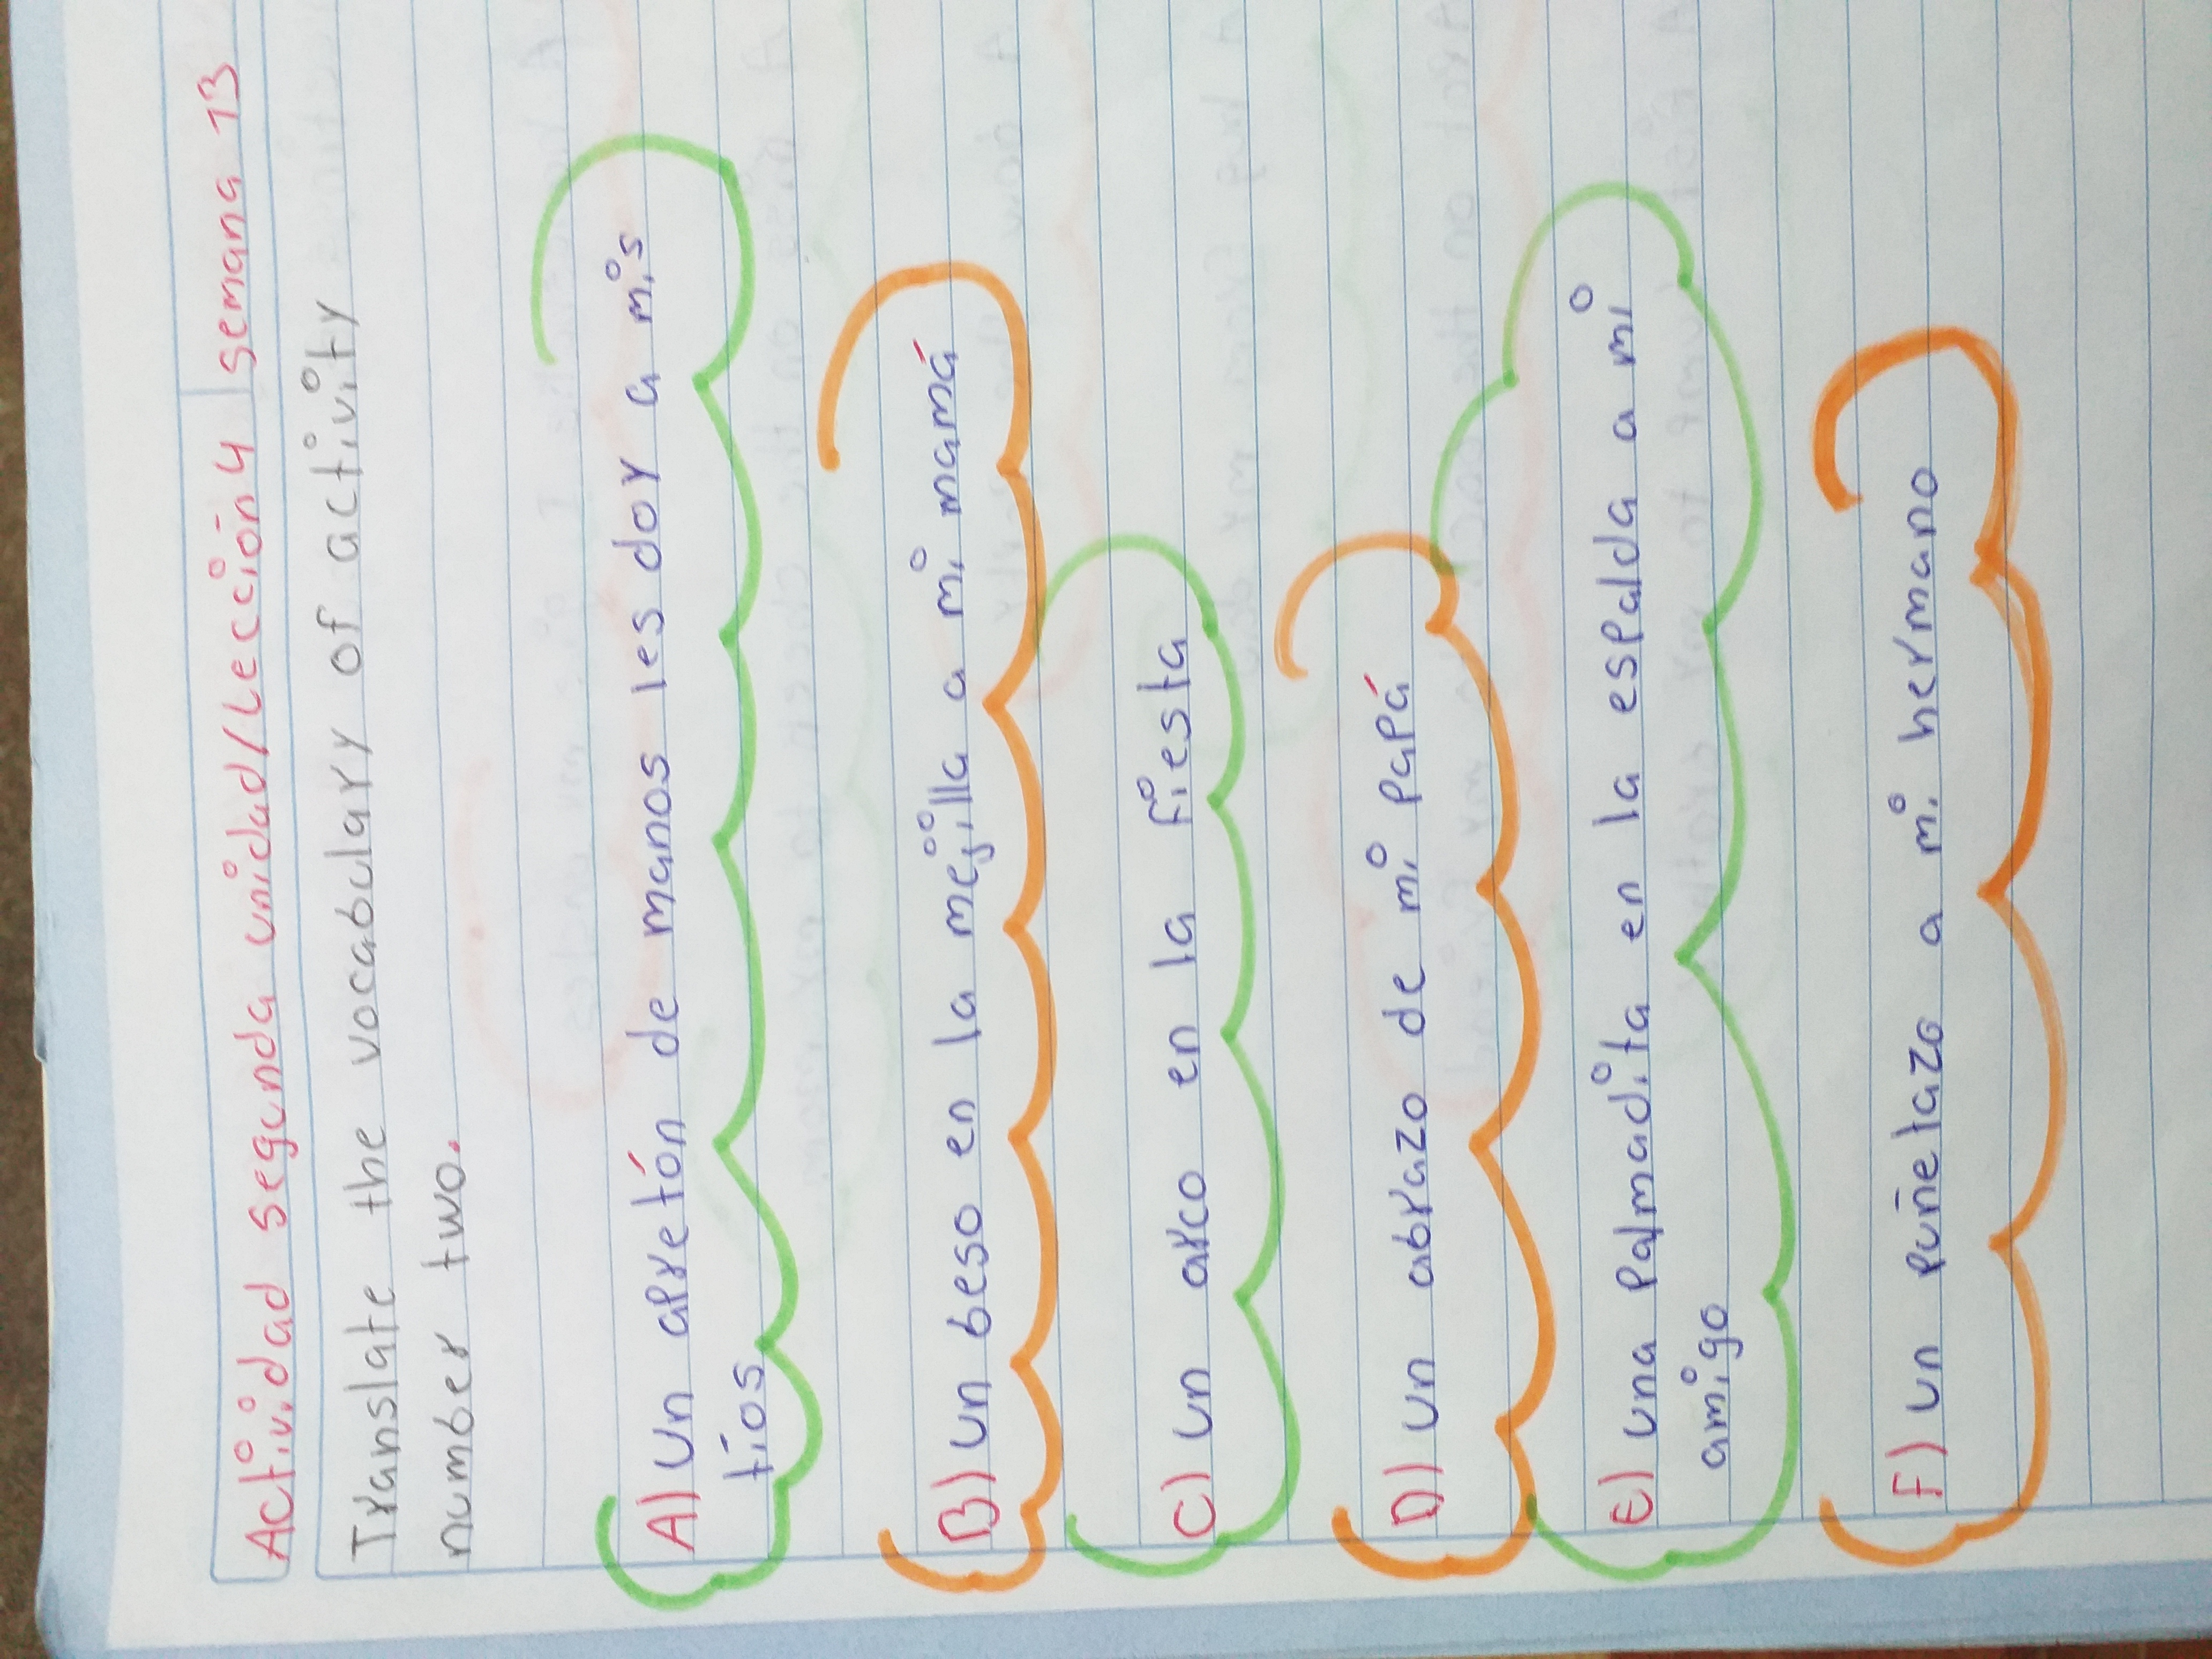 Actividad segunda unidad/Lección 4 semana 13
Translate the vocabulary of activity
number two.
A) Un apretón de manos les doy a mis
tíos
B) un beso en la mejilla a mi mamá
C) un arco en la fiesta
D) un abrazo de mi papá
E) una palmadita en la espalda a mi
amigo
F) un puñetazo a mi hermano